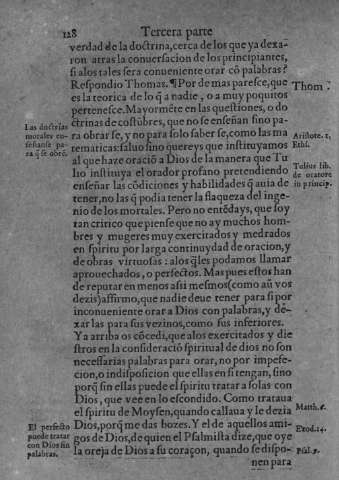 128 Tercera parte
verdad de la doctrina, cerca de los que ya dexa-
ron atras la conuersacion de los principiantes,
si a los tales sera conueniente orar cõ palabras?
Respondio Thomas. ¶Por de mas paresce, que
es la teorica de lo q̃ a nadie, o a muy poquitos
pertenesce. Mayormẽte en las questiones, o do
ctrinas de costũbres, que no se enseñan sino pa-
ra obrar se, y no para solo saber se, como las ma
tematicas: saluo sino quereys que instituyamos
al que haze oraciõ a Dios de la manera que Tu
lio instituya el orador profano pretendiendo
enseñar las cõdiciones y habilidades q̃ auia de
tener, no las q̃ podia tener la flaqueza del inge-
nio de los mortales. Pero no entẽdays, que soy
tan critico que piense que no ay muchos hom-
bres y mugeres muy exercitados y medrados
en spiritu por larga continuydad de oracion, y
de obras virtuosas: a los q̃les podamos llamar
aprouechados, o perfectos. Mas pues estos han
de reputar en menos a si mesmos (como aũ vos
dezis) affirmo, que nadie deue tener para si por
inconueniente orar a Dios con palabras, y dé-
xar las para sus vezinos, como sus inferiores.
Ya arriba os cõcedi, que a los exercitados y die
stros en la consideraciõ spiritual de dios no son
necessarias palabras para orar, no por impefe-
cion, o indisposicion que ellas en si tengan, sino
porq̃ sin ellas puede el spiritu tratar a solas con
Dios, que vee en lo escondido. Como trataua
el spiritu de Moysen, quando callaua y le dezia
Dios, porq̃ me das bozes. Y el de aquellos ami-
gos de Dios, de quien el Psalmista dize, que oye
la oreja de Dios a su coraçon, quando se dispo-
nen para
Thom.
Las doctrias
morales en-
señanse pa-
ra q̃ se obrē.
Aristote. 1,
Ethi.
Tulius lib.
de oratore
in princip.
Matth. 6.
El perfecto
puede tratar
con Dios sin
palabras.
Exod. 14.
Psal. 9.